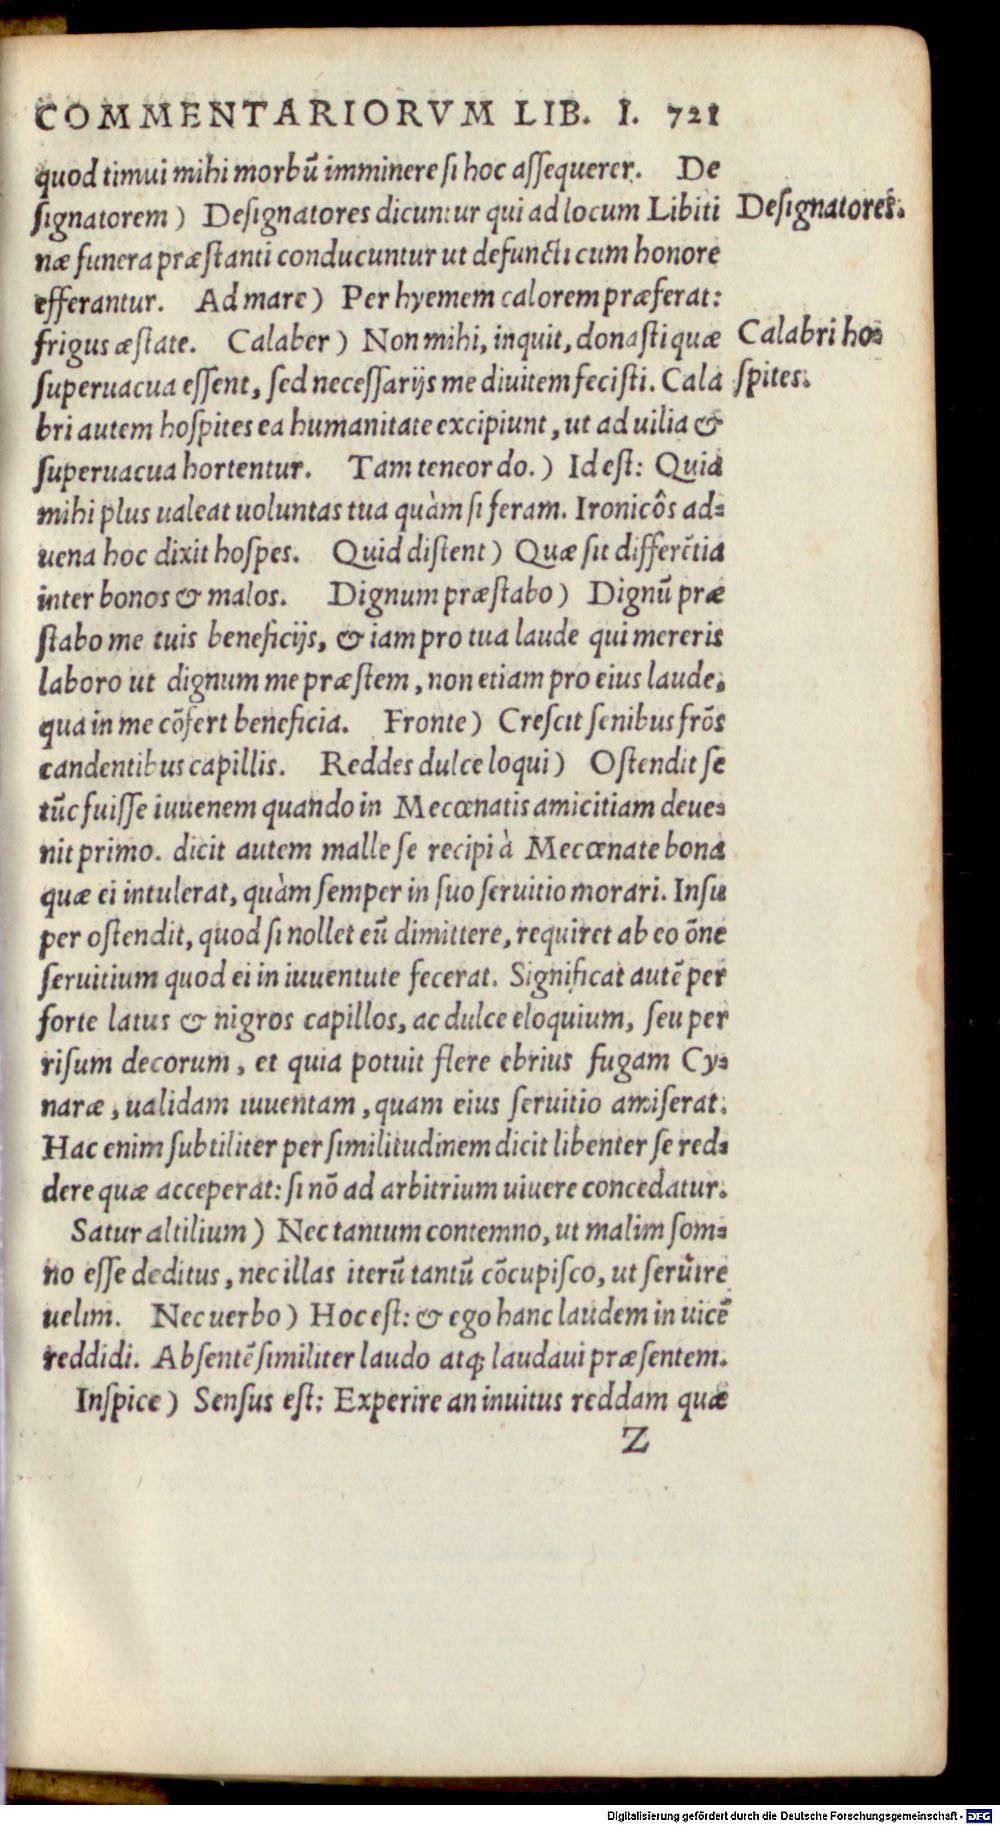 COMMENTARIORVM LIB. I. 721
quod timui mihi morbũ imminere si hoc assequerer. De
signatorem) Designatores dicuntur qui ad locum Libiti
Designatores.
næ funera præstanti conducuntur ut defuncti cum honore
efferantur. Ad mare) Per hyemem calorem præferat:
frigus æstate. Calaber) Non mihi, inquit, donasti quæ
Calabri ho=
superuacua essent, sed necessarijs me diuitem fecisti. Cala
spites.
bri autem hospites ea humanitate excipiunt, ut ad uilia &
superuacua hortentur. Tam teneor do.) Id est: Quia
mihi plus ualeat uoluntas tua quàm si feram. Ironicôs ad=
uena hoc dixit hospes. Quid distent) Quæ sit differẽtia
inter bonos & malos. Dignum præstabo) Dignũ præ
stabo me tuis beneficijs, & iam pro tua laude qui mereris
laboro ut dignum me præstem, non etiam pro eius laude,
qua in me cõfert beneficia. Fronte) Crescit senibus frõs
candentibus capillis. Reddes dulce loqui) Ostendit se
tũc fuisse iuuenem quando in Mecœnatis amicitiam deue=
nit primo. dicit autem malle se recipi à Mecœnate bona
quæ ei intulerat, quàm semper in suo seruitio morari. Insu
per ostendit, quod si nollet eũ dimittere, requiret ab eo õne
seruitium quod ei in iuuentute fecerat. Significat autẽ per
forte latus & nigros capillos, ac dulce eloquium, seu per
risum decorum, et quia potuit flere ebrius fugam Cy=
naræ, ualidam iuuentam, quam eius seruitio amiserat.
Hac enim subtiliter per similitudinem dicit libenter se red=
dere quæ acceperat: si nõ ad arbitrium uiuere concedatur.
Satur altilium) Nec tantum contemno, ut malim som=
no esse deditus, nec illas iterũ tantũ cõcupisco, ut seruire
uelim. Nec uerbo) Hoc est: & ego hanc laudem in uicẽ
reddidi. Absentẽ similiter laudo atq; laudaui præsentem.
Inspice) Sensus est: Experire an inuitus reddam quæ
Z
Digitalisierung gefördert durch die Deutsche Forschungsgemeinschaft - DFG